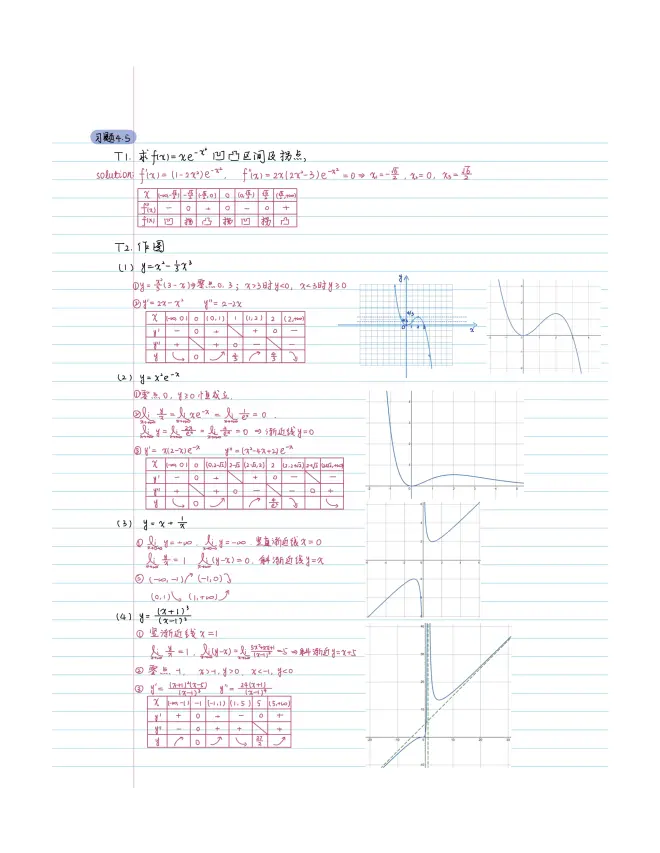 习题4.5
T1. 求 f(x)=xe^{-x²} 凹凸区间及拐点,
solution: f'(x)=(1-2x²)e^{-x²}, f''(x)=2x(2x²-3)e^{-x²}=0 ⇒ x₁=-√6/2, x₂=0, x₃=√6/2
x (-∞,-√6/2) -√6/2 (-√6/2,0) 0 (0,√6/2) √6/2 (√6/2,+∞)
f''(x) - 0 + 0 - 0 +
f(x) 凹 拐 凸 拐 凹 拐 凸
T2. 作图
(1) y=x²-⅓x³
① y=x²/3(3-x)⇒零点0,3; x>3时y<0, x<3时y≥0
② y'=2x-x² y''=2-2x
x (-∞,0) 0 (0,1) 1 (1,2) 2 (2,+∞)
y' - 0 + + 0 -
y'' + + 0 - -
y 0 2/3 4/3
(2) y=x²e^{-x}
① 零点0, y≥0恒成立.
② lim y/x = lim xe^{-x} = lim 1/e^x = 0.
lim y = lim 2x/e^x = lim 2/e^x = 0 ⇒ 渐近线y=0
③ y'=x(2-x)e^{-x} y''=(x²-4x+2)e^{-x}
x (-∞,0) 0 (0,2-√2) 2-√2 (2-√2,2) 2 (2,2+√2) 2+√2 (2+√2,+∞)
y' - 0 + + 0 - -
y'' + + 0 - - 0 +
y 0 4/e²
(3) y=x+1/x
① lim y=+∞, lim y=-∞. 竖直渐近线x=0
lim y/x=1 lim(y-x)=0. 斜渐近线y=x
② (-∞,-1)↗ (-1,0)↘
(0,1)↘ (1,+∞)↗
(4) y=(x+1)³/(x-1)²
① 竖渐近线x=1
lim y/x=1, lim(y-x)=lim =5 ⇒斜渐近y=x+5
② 零点-1, x>-1,y>0, x<-1,y<0
③ y'=(x+1)²(x-5)/(x-1)³ y''=24(x+1)/(x-1)⁴
x (-∞,-1) -1 (-1,1) (1,5) 5 (5,+∞)
y' + 0 + - 0 +
y'' - 0 + + +
y 0 27/2